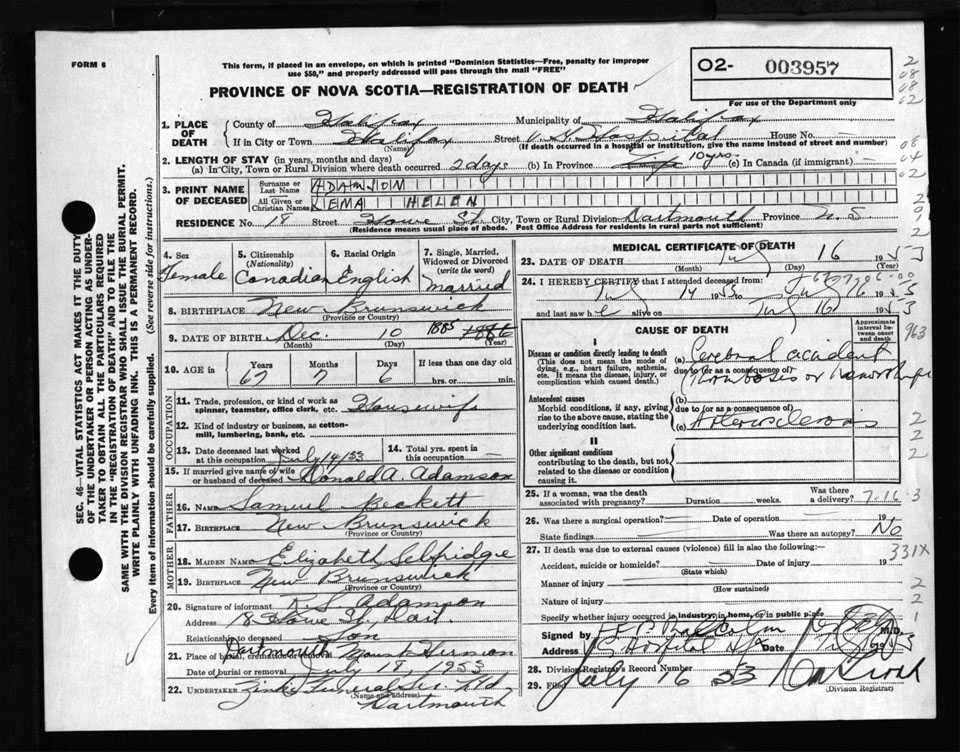 FORM 6
This form, if placed in an envelope, on which is printed "Dominion Statistics—Free, penalty for improper
use $50," and properly addressed will pass through the mail "FREE"
O2- 003957
For use of the Department only
PROVINCE OF NOVA SCOTIA—REGISTRATION OF DEATH
1. PLACE OF DEATH
County of Halifax Municipality of Halifax
If in City or Town Halifax Street V.G. Hospital House No. —
(Name) (If death occurred in a hospital or institution, give the name instead of street and number)
2. LENGTH OF STAY (in years, months and days)
(a) In City, Town or Rural Division where death occurred 2 days (b) In Province Life 10 yrs. (c) In Canada (if immigrant) —
3. PRINT NAME OF DECEASED
Surname or Last Name ADAMSON
All Given or Christian Names LEMA HELEN
RESIDENCE No. 18 Street Howe St. City, Town or Rural Division Dartmouth Province N.S.
(Residence means usual place of abode. Post Office Address for residents in rural parts not sufficient)
4. Sex Female
5. Citizenship (Nationality) Canadian
6. Racial Origin English
7. Single, Married, Widowed or Divorced (write the word) Married
8. BIRTHPLACE New Brunswick
(Province or Country)
9. DATE OF BIRTH Dec. 10 1885 1886
(Month) (Day) (Year)
10. AGE in Years 67 Months 7 Days 6 If less than one day old hrs. or min.
OCCUPATION
11. Trade, profession, or kind of work as
spinner, teamster, office clerk, etc. Housewife
12. Kind of industry or business, as cotton-
mill, lumbering, bank, etc.
13. Date deceased last worked at this occupation July 14/53
14. Total yrs. spent in this occupation —
15. If married give name of wife
or husband of deceased Donald A. Adamson
FATHER
16. NAME Samuel Beckett
17. BIRTHPLACE New Brunswick
(Province or Country)
MOTHER
18. MAIDEN NAME Elizabeth Selfridge
19. BIRTHPLACE New Brunswick
(Province or Country)
20. Signature of informant K. S. Adamson
Address 18 Howe St. Dart.
Relationship to deceased Son
21. Place of burial, cremation or removal Dartmouth Mount Hermon
Date of burial or removal July 18, 1953
22. UNDERTAKER Zink's Funeral Ltd
(Name and address)
Dartmouth
MEDICAL CERTIFICATE OF DEATH
23. DATE OF DEATH July 16 1953
(Month) (Day) (Year)
24. I HEREBY CERTIFY that I attended deceased from:
July 14 1953 to July 16 1953
and last saw h alive on July 16 1953
CAUSE OF DEATH
Approximate interval between onset and death
I
Disease or condition directly leading to death
(This does not mean the mode of dying, e.g., heart failure, asthenia, etc. It means the disease, injury, or complication which caused death.)
(a) Cerebral accident
due to (or as a consequence of)
Thrombosis or
Antecedent causes
Morbid conditions, if any, giving rise to the above cause, stating the underlying condition last.
(b)
due to (or as a consequence of)
(c) Arteriosclerosis
II
Other significant conditions
contributing to the death, but not related to the disease or condition causing it.
25. If a woman, was the death associated with pregnancy? Duration weeks. Was there a delivery?
7-16-3
26. Was there a surgical operation? Date of operation
State findings Was there an autopsy? No
27. If death was due to external causes (violence) fill in also the following:—
331X
Accident, suicide or homicide? Date of injury
(State which)
Manner of injury
Nature of injury
Specify whether injury occurred in industry, in home, or in public place
Signed by M.D.
Address Date
28. Division Registrar's Record Number
29. Filed July 16 53
(Division Registrar)
SEC. 46—VITAL STATISTICS ACT MAKES IT THE DUTY
OF THE UNDERTAKER OR PERSON ACTING AS UNDER-
TAKER TO OBTAIN ALL THE PARTICULARS REQUIRED
IN THE "REGISTRATION OF DEATH" AND TO FILE THE
SAME WITH THE DIVISION REGISTRAR WHO SHALL ISSUE THE BURIAL PERMIT.
WRITE PLAINLY WITH UNFADING INK. THIS IS A PERMANENT RECORD.
Every item of information should be carefully supplied. (See reverse side for instructions.)